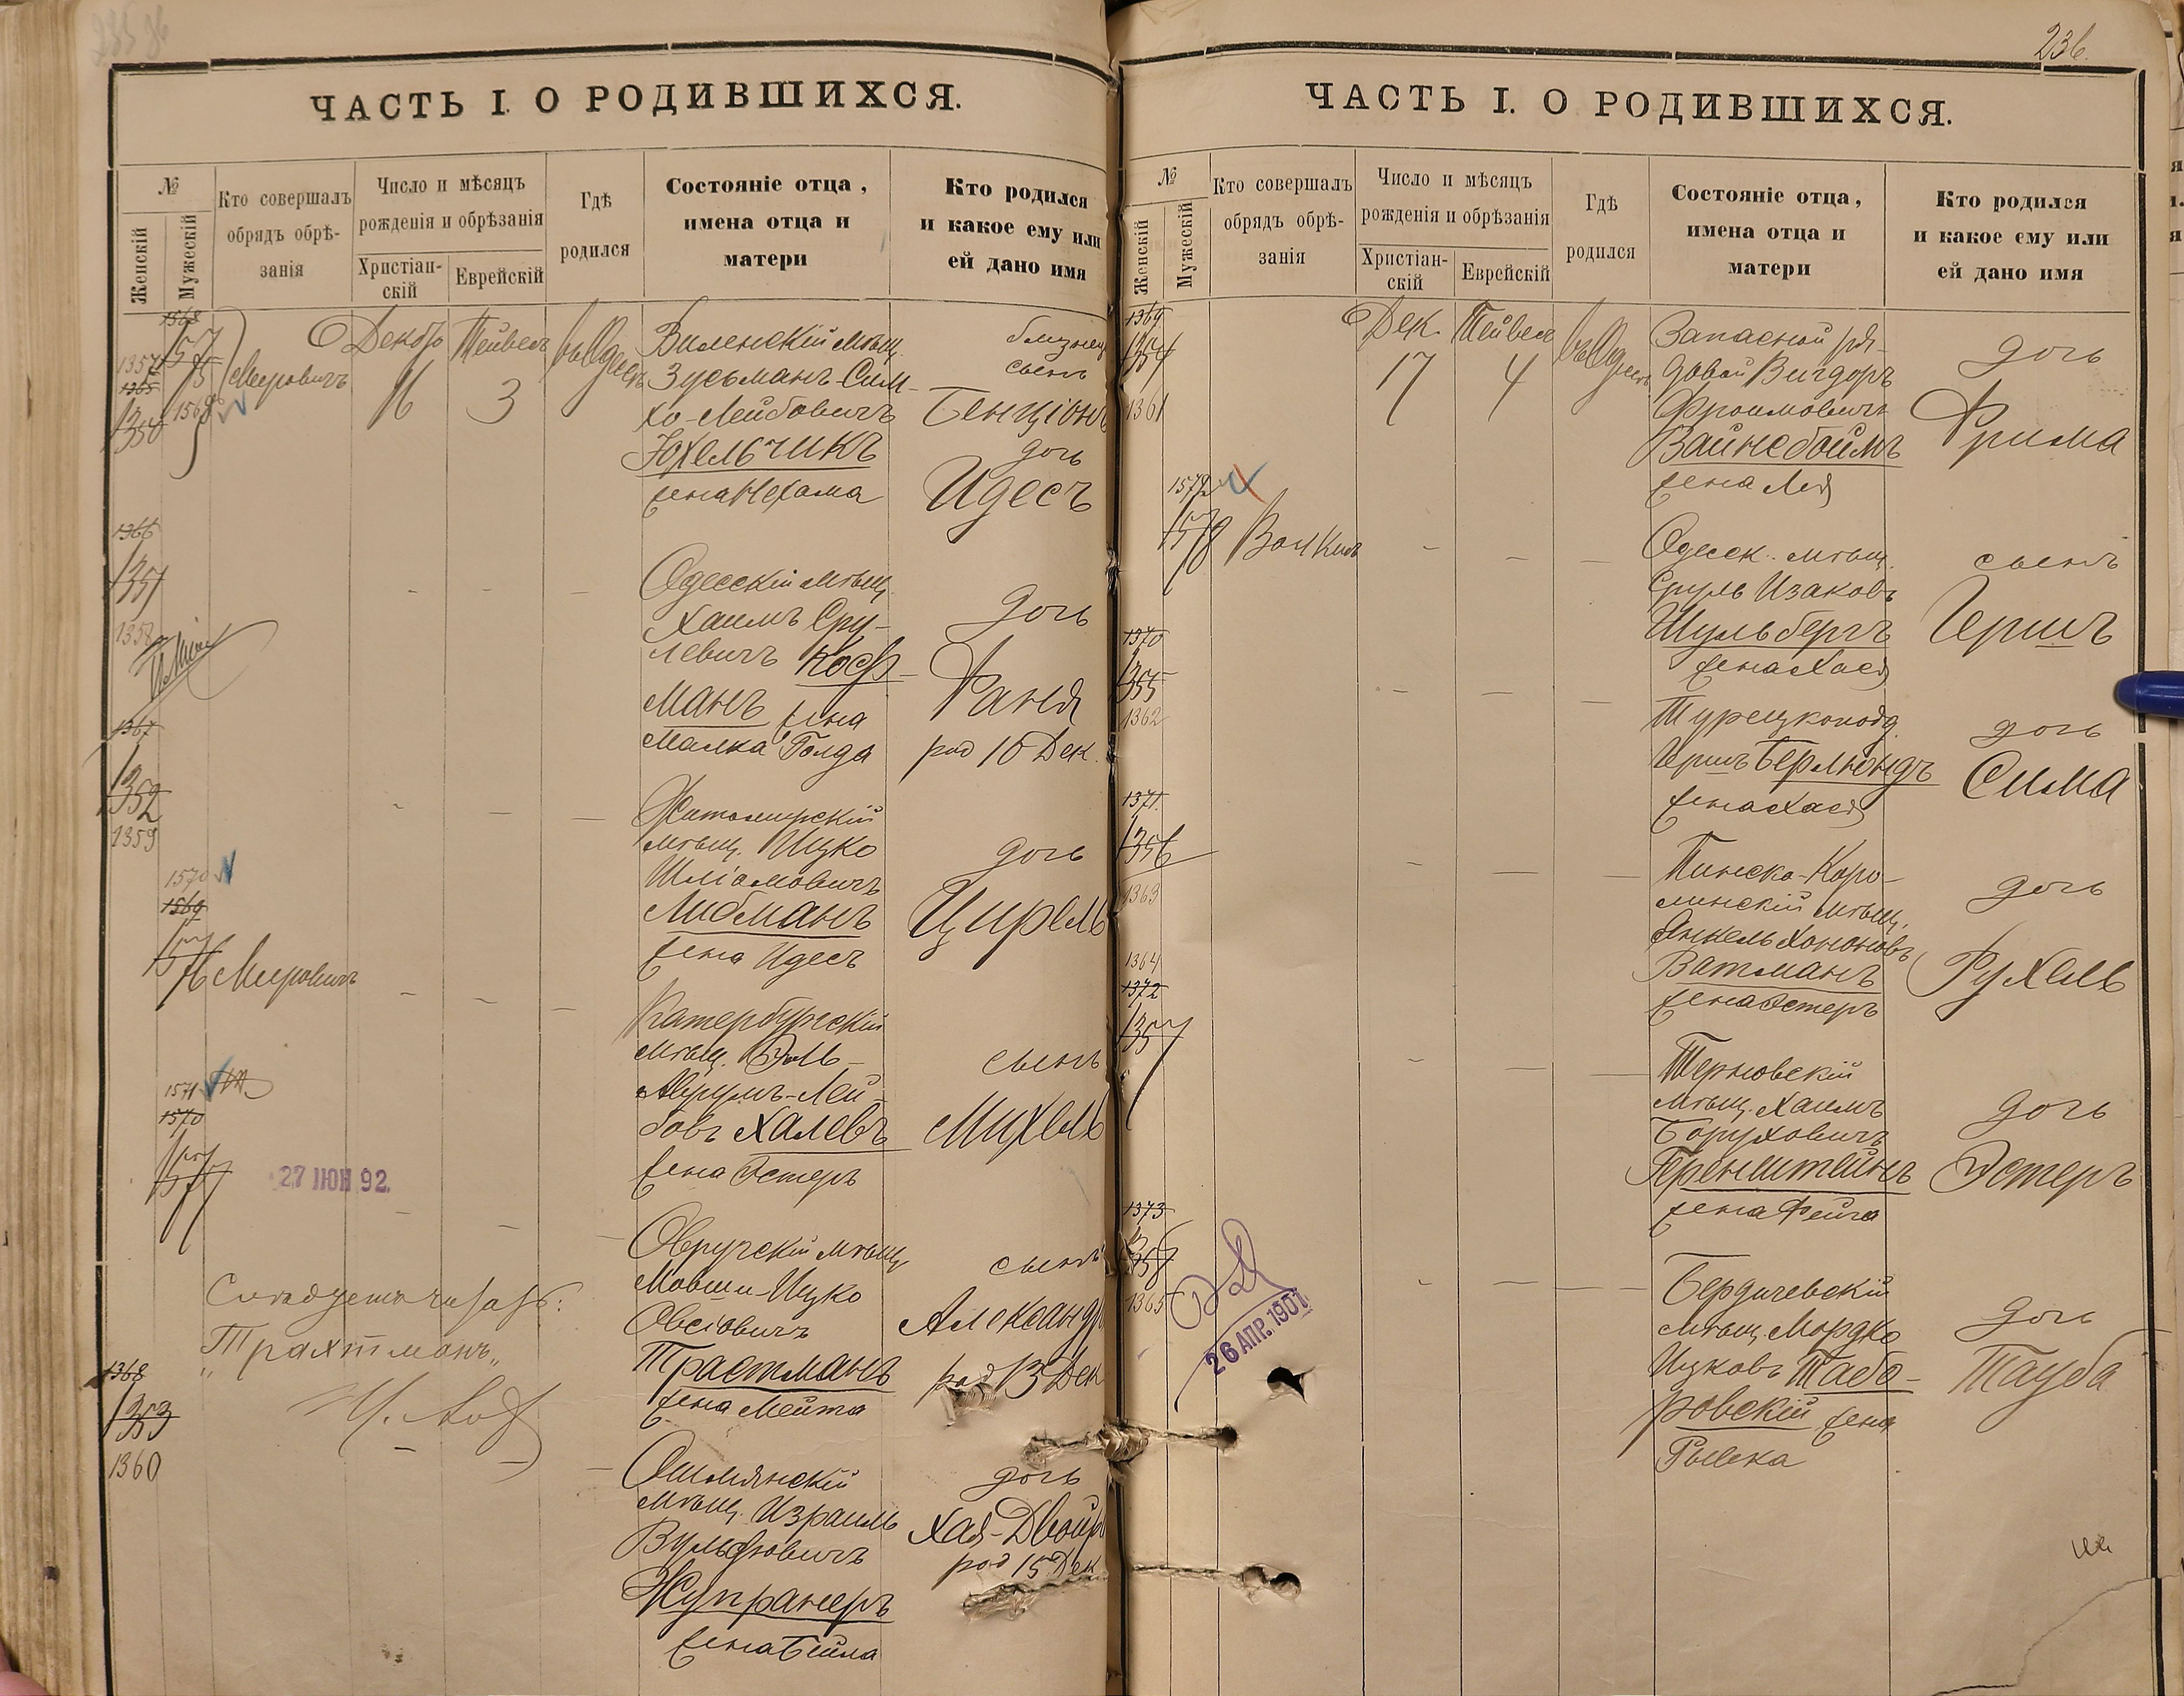 236.
ЧАСТЬ I. О РОДИВШИХСЯ.
№
Женскій
Мужескій
Кто совершалъ
обрядъ обрѣ-
занія
Число и мѣсяцъ
рожденія и обрѣзанія
Христіан-
скій
Еврейскій
Гдѣ
родился
Состояніе отца,
имена отца и
матери
Кто родился
и какое ему или
ей дано имя
1568
1575
1357
1365
1350
1568
Мирович
Декабр
16
Тейвес
3
въ Одессѣ
Виленскій мѣщ.
Зусьманъ-Сим-
хо-Лейбовичъ
Юхельчикъ
жена Нехама
близнец
сынъ
Бенціонъ
дочь
Идесъ
1366
1351
1358
Одесскій мѣщ.
Хаимъ Сру-
левичъ Коф-
манъ жена
Малка Голда
дочь
Фаня
род 10 Дек.
1367
1352
1359
Житомирскій
мѣщ. Ицко
Шліомовичъ
Либманъ
жена Идесъ
дочь
Цирель
1570
1569
1576
Мировичъ
Катербургскій
мѣщ. Эль-
Аврумъ-Лей-
бовъ Халевъ
жена Эстеръ
сынъ
Михель
1571
1570
1577
27 ІЮН 92.
Овручскій мѣщ.
Мовши-Ицко
Овсіовичъ
Трастманъ
жена Мейта
сынъ
Александр
род 13 Дек
Слѣдуетъ читать:
"Трахтманъ"
1368
1353
1360
Ошмянскій
мѣщ. Израиль
Вульфовичъ
Жупранеръ
жена Бейла
дочь
Хая-Двойра
род 15 Дек
ЧАСТЬ I. О РОДИВШИХСЯ.
№
Женскій
Мужескій
Кто совершалъ
обрядъ обрѣ-
занія
Число и мѣсяцъ
рожденія и обрѣзанія
Христіан-
скій
Еврейскій
Гдѣ
родился
Состояніе отца,
имена отца и
матери
Кто родился
и какое ему или
ей дано имя
1369
1354
1361
Дек.
17
Тейвесъ
4
въ Одессѣ
Запасной ря-
довой Вигдоръ
Фроимовичъ
Вайнебоймъ
жена Лея
дочь
Фрима
1572
1578
Волкинъ
Одесск. мѣщ.
Сруль Изаковъ
Шульбергъ
жена Хася
сынъ
Гершъ
1370
1355
1362
Турецкопод.
Гершъ Бермондъ
жена Хася
дочь
Сима
1371
1356
1363
Пинско-Каро-
линскій мѣщ.
Янкель Хононовъ
Ватманъ
жена Эстеръ
дочь
Рухель
1364
1372
1357
Терновскій
мѣщ. Хаимъ
Боруховичъ
Гренштейнъ
жена Фейга
дочь
Эстеръ
1373
1358
1365
26 АПР. 1901
Бердичевскій
мѣщ. Мордко
Ицковъ Табо-
ровскій жена
Рывка
дочь
Тауба